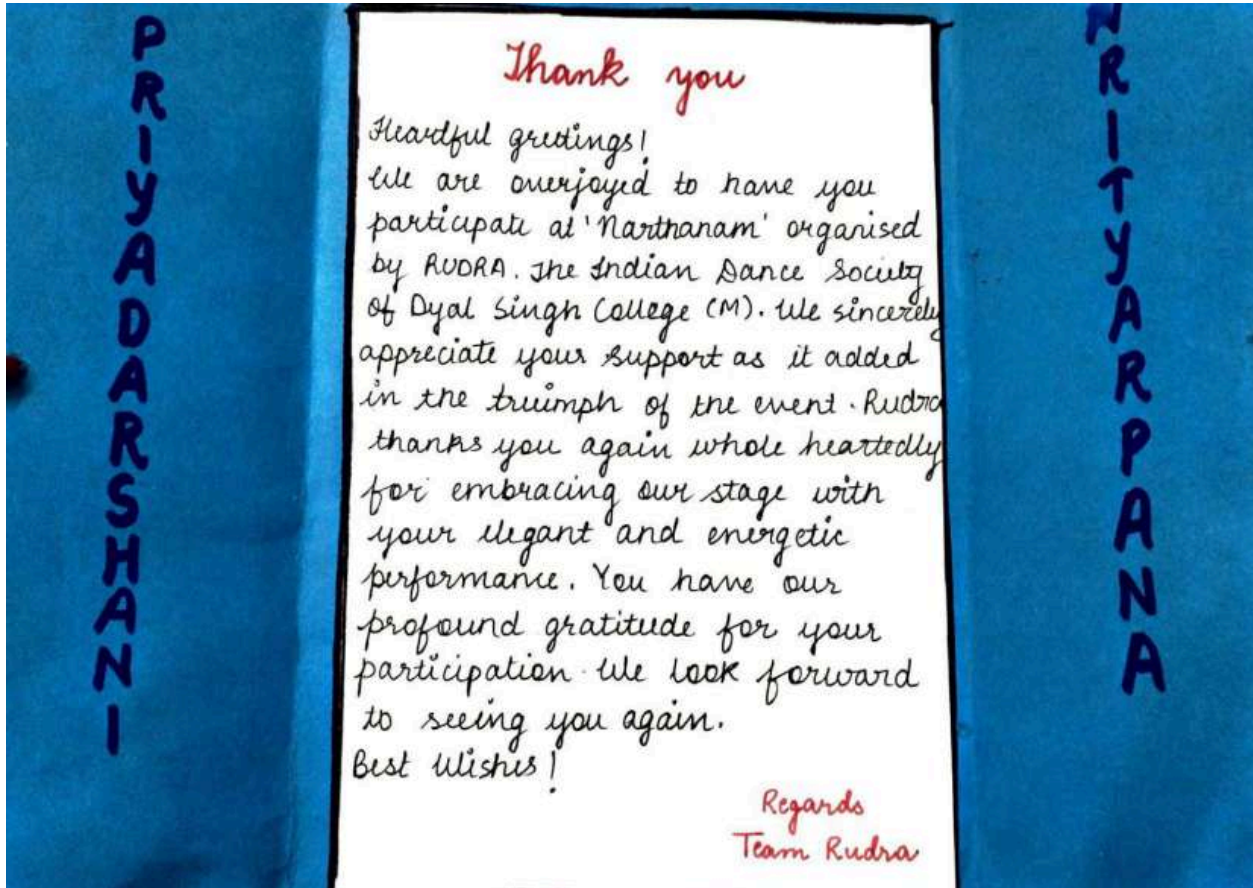 PRIYADARSHANI
Thank you
Heardful greetings!
We are overjoyed to have you
participate at 'Narthanam' organised
by RUDRA. The Indian Dance Society
of Dyal Singh College (M). We sincerely
appreciate your support as it added
in the triumph of the event. Rudra
thanks you again whole heartedly
for embracing our stage with
your elegant and energetic
performance. You have our
profound gratitude for your
participation. We look forward
to seeing you again.
Best Wishes!
Regards
Team Rudra
NRITYARPANA